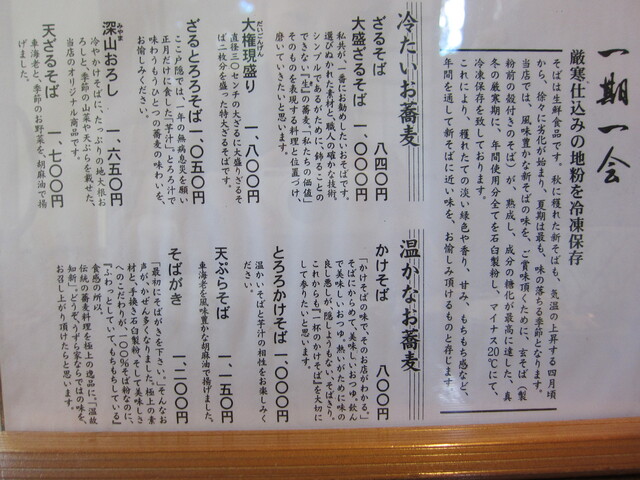 一期一会
厳寒仕込みの地粉を冷凍保存
そばは生鮮食品です。秋に穫れた新そばも、気温の上昇する四月頃
から、徐々に劣化が始まり、夏期は最も、味の落ちる季節となります。
当店では、風味豊かな新そばの味を、ご賞味頂くために、玄そば（製
粉前の殻付きのそば）が、熟成し、成分の糖化が最高に達した、真
冬の厳寒期に、年間使用分全てを石臼製粉し、マイナス20℃にて、
冷凍保存を致しております。
これにより、穫れたての淡い緑色や香り、甘み、もちもち感など、
年間を通して新そばに近い味を、お愉しみ頂けるものと存じます。
冷たいお蕎麦
ざるそば 八四〇円
大盛ざるそば 一、〇〇〇円
私共が、一番にお勧めしたいおそばです。
選びぬかれた素材と、職人の確かな技術。
シンプルであるがために、飾ることの
できない『生』の蕎麦。「私たちの価値」
そのものを表現する料理と位置づけ、
磨いていきたいと思います。
大権現盛り 一、八〇〇円
だいごんげん
直径三〇センチの大ざるに大盛りざるそ
ば二枚分を盛った特大ざるそばです。
ざるとろろそば 一、〇五〇円
ここ戸隠では、一年の無病息災を願い
正月だけに食した「芋汁」。とろろ汁で
味わうもうひとつの蕎麦の味わいを、
お愉しみください。
深山おろし 一、六五〇円
みやま
冷やかけそばに、たっぷりの地大根お
ろしと、季節の山菜や天ぷらを載せた、
当店のオリジナル商品です。
天ざるそば 一、七〇〇円
車海老と、季節のお野菜を、胡麻油で揚
げました。
温かなお蕎麦
かけそば 八〇〇円
「かけそばの味で、そのお店がわかる。」
そばにからめて、美味しいおつゆ。飲ん
で美味しいおつゆ。熱いがために味の
良し悪しが、隠しようもないそばぎり。
これからも『一杯のかけそば』を大切に
して参りたいと思います。
とろろかけそば 一、〇〇〇円
温かいそばと芋汁の相性をお楽しみく
ださい。
天ぷらそば 一、一五〇円
車海老を風味豊かな胡麻油で揚げました。
そばがき 一、二〇〇円
「最初にそばがきを下さい。」そんなお
声が、かぜん多くなりました。極上の素
材と、手挽き石臼製粉、そして美味しさ
へのこだわりが、一〇〇％そば粉なのに、
『ふわっとしていて、もちもちしている』
食感の所以。
伝統の蕎麦料理を極上の逸品に、「温故
知新」。どうぞ、うずら家ならではの味を、
お召し上がり頂けたらと思います。